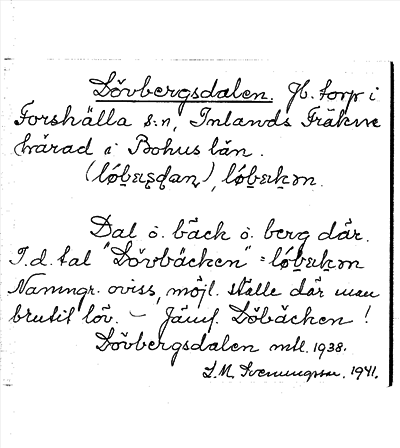 Lövbergsdalen. Jb. torp i
Forshälla s:n, Inlands Fräkne
härad i Bohus län.
Dal o. bäck o. berg där.
I d. tal "Lövbäcken" =
Namngr. oviss, möjl. ställe där man
brutit löv. – Jämf. Löbäcken!
Lövbergsdalen mtl. 1938.
S. M. Svenungsson. 1941.